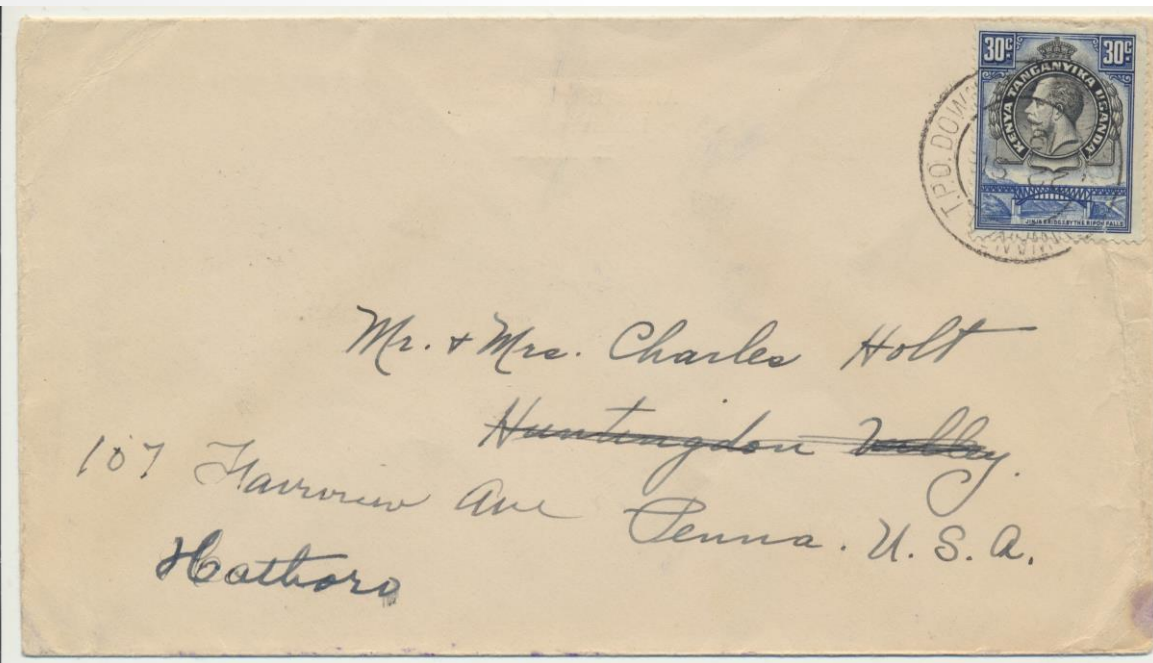 30c 30c
KENYA TANGANYIKA UGANDA
JINJA BRIDGE BY THE RIPON FALLS
T.P.O. DOWN
Mr. & Mrs. Charles Holt
Huntingdon Valley.
107 Fairview Ave
Penna. U. S. A.
Hatboro